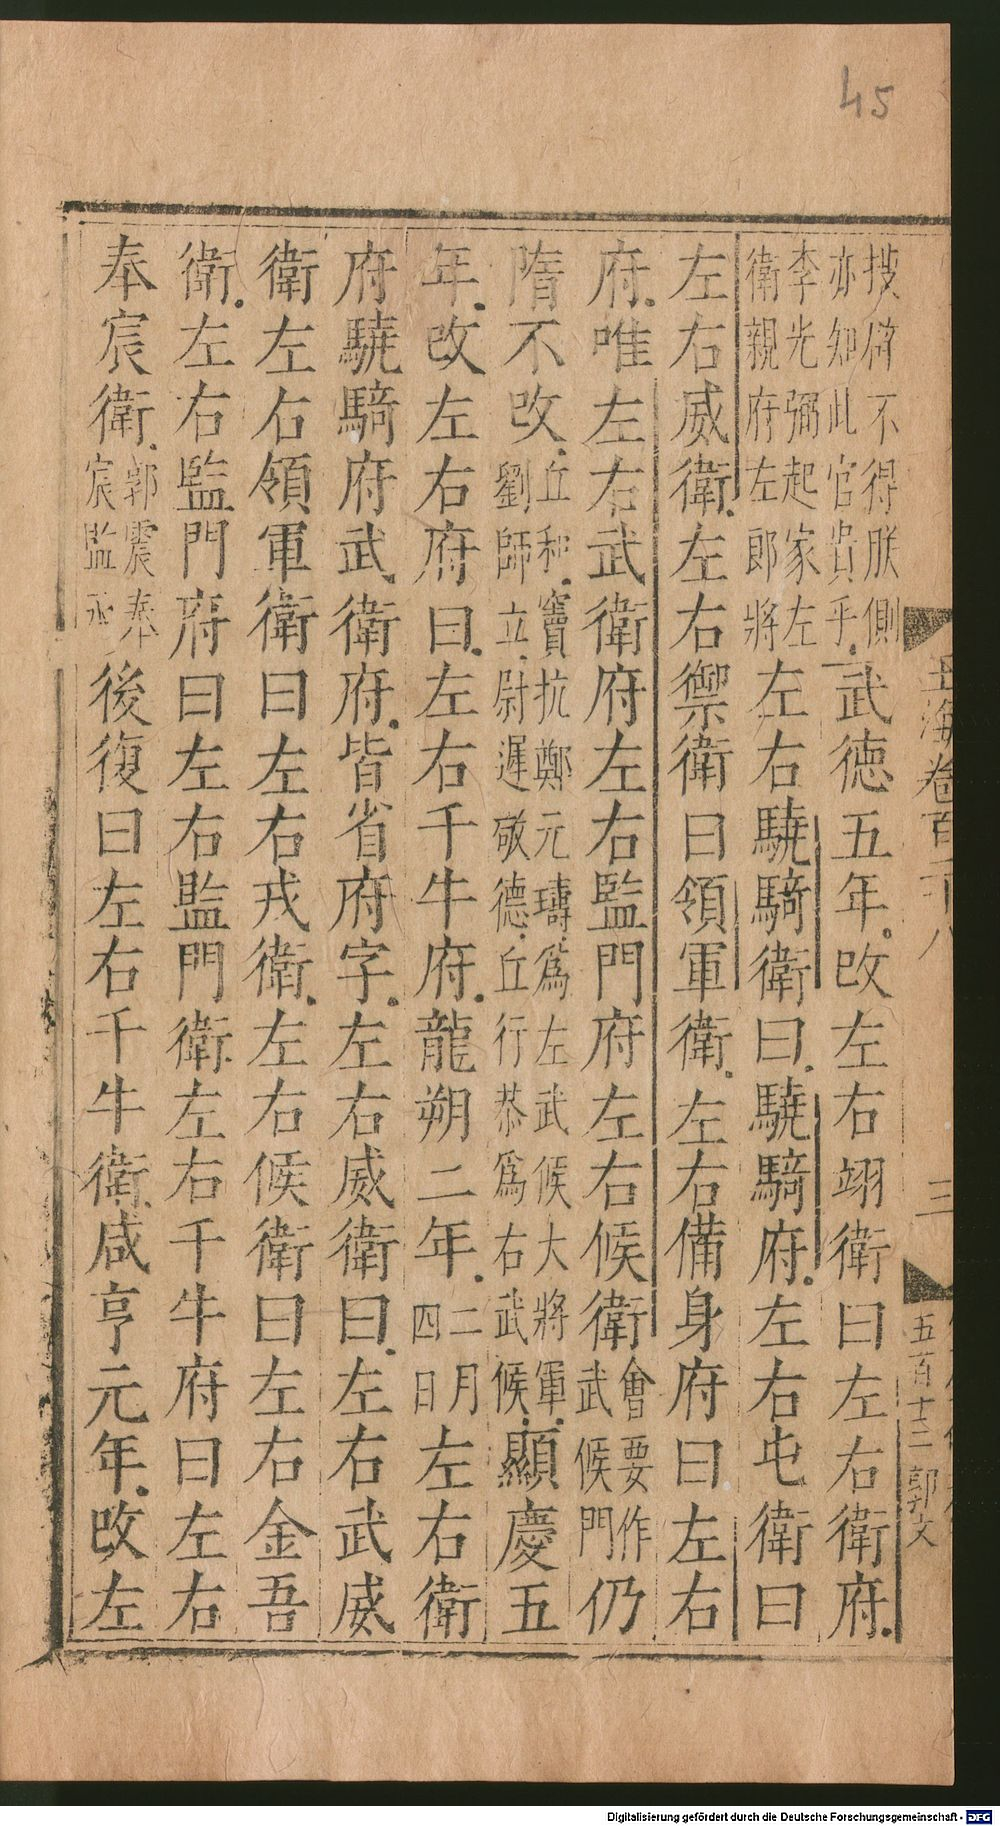 45
玉海卷百三十八
三
五百十三
郭文
技癖不得朕側
亦知此官貴乎武德五年改左右翊衛曰左右衛府
李光弼起家左
衛親府左郎將左右驍騎衛曰驍騎府左右屯衛曰
左右威衛左右禦衛曰領軍衛左右備身府曰左右
府唯左右武衛府左右監門府左右候衛會要作武候門仍
隋不改丘和竇抗鄭元璹為左武候大將軍
劉師立尉遲敬德丘行恭為右武候顯慶五
年改左右府曰左右千牛府龍朔二年二月四日左右衛
府驍騎府武衛府皆省府字左右威衛曰左右武威
衛左右領軍衛曰左右戎衛左右候衛曰左右金吾
衛左右監門府曰左右監門衛左右千牛府曰左右
奉宸衛郭震奉宸監丞後復曰左右千牛衛咸亨元年改左
Digitalisierung gefördert durch die Deutsche Forschungsgemeinschaft - DFG